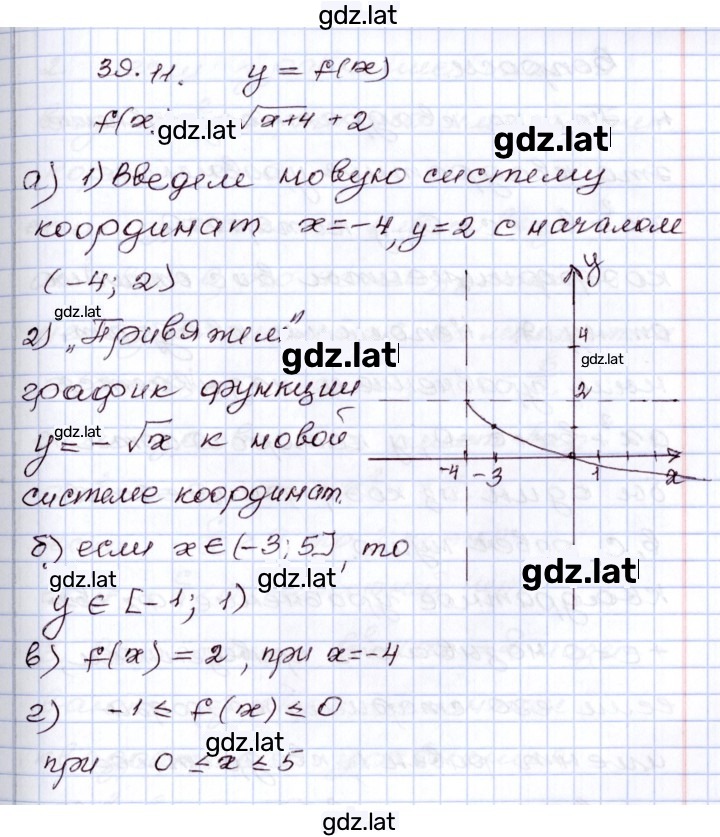 gdz.lat
39.11. y = f(x)
f(x gdz.lat √x+4 + 2
gdz.lat
а) 1) Введем новую систему
координат x=-4, y=2 с началом
(-4; 2)
gdz.lat
2) „Привяжем"
gdz.lat
график функции
gdz.lat
y = -√x к новой
системе координат.
y
4
gdz.lat
2
-4 -3 1 x
б) если x ∈ (-3; 5], то
gdz.lat gdz.lat gdz.lat
y ∈ [-1; 1)
в) f(x) = 2, при x=-4
г) -1 ≤ f(x) ≤ 0
gdz.lat
при 0 ≤ x ≤ 5
gdz.lat